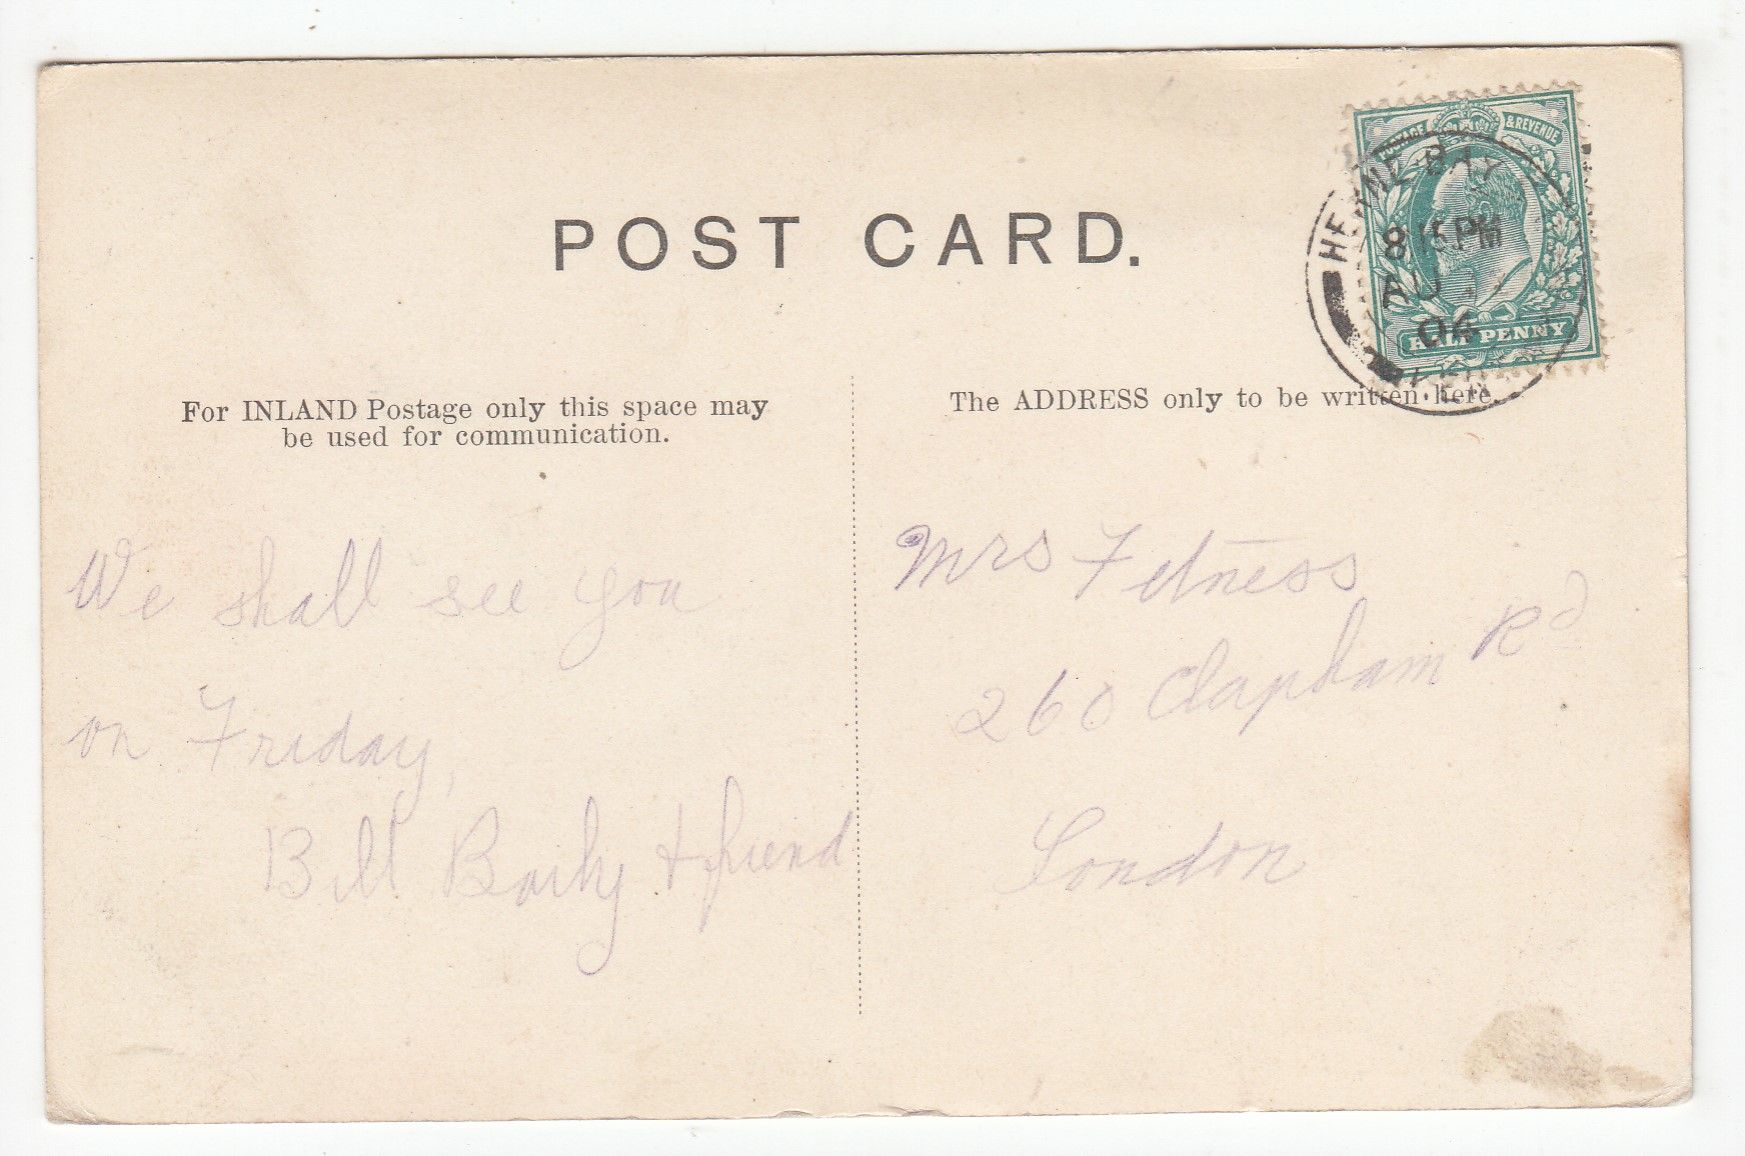 POST CARD.
POSTAGE & REVENUE
HERNE BAY
8 15 PM
AU
06
HALF PENNY
For INLAND Postage only this space may
be used for communication.
The ADDRESS only to be written here.
We shall see you
on Friday,
Bill Baily & friend
Mrs Fetness
260 Clapham Rd
London